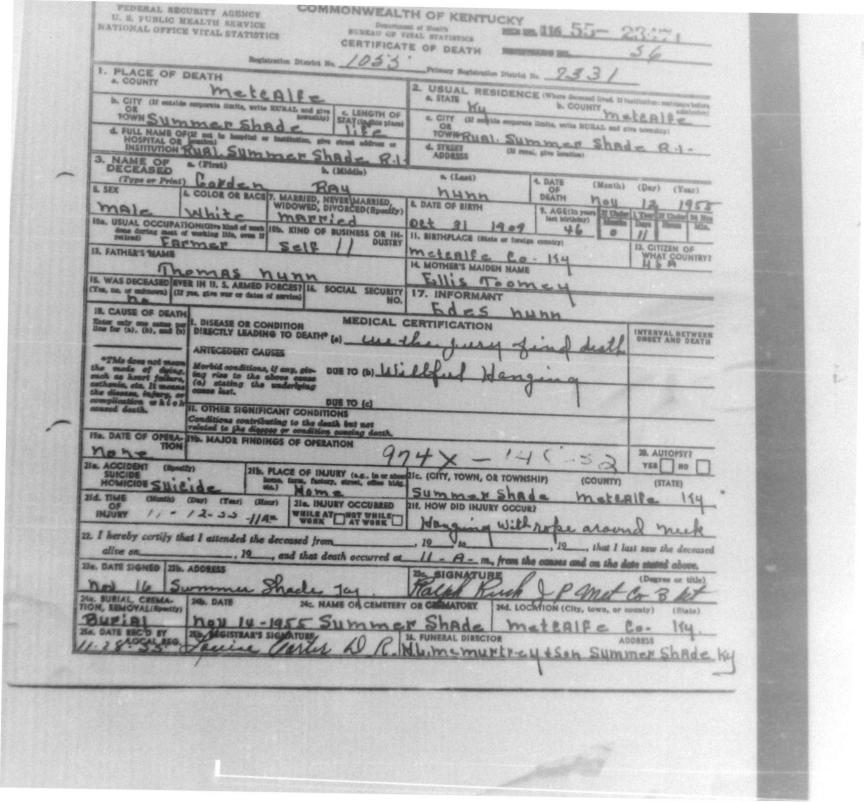 FEDERAL SECURITY AGENCY
U. S. PUBLIC HEALTH SERVICE
NATIONAL OFFICE VITAL STATISTICS
COMMONWEALTH OF KENTUCKY
Department of Health
BUREAU OF VITAL STATISTICS
CERTIFICATE OF DEATH
116 55-
56
Registration District No. 1055 Primary Registration District No. 2331
1. PLACE OF DEATH
a. COUNTY Metcalfe
2. USUAL RESIDENCE (Where deceased lived. If institution: residence before admission)
a. STATE Ky b. COUNTY Metcalfe
b. CITY (If outside corporate limits, write RURAL and give township) OR TOWN Summer Shade
c. LENGTH OF STAY (in this place) life
c. CITY (If outside corporate limits, write RURAL and give township) OR TOWN Rural. Summer Shade R.1-
d. FULL NAME OF (If not in hospital or institution, give street address or location) HOSPITAL OR INSTITUTION Rural Summer Shade R.1-
d. STREET ADDRESS (If rural, give location)
3. NAME OF DECEASED (Type or Print)
a. (First) Gorden b. (Middle) Ray c. (Last) Nunn
4. DATE OF DEATH (Month) (Day) (Year) Nov 12 1955
5. SEX Male
6. COLOR OR RACE White
7. MARRIED, NEVER MARRIED, WIDOWED, DIVORCED (Specify) Married
8. DATE OF BIRTH Oct 31 1909
9. AGE (In years last birthday) 46 If Under 1 Year Months 0 Days 11 If Under 24 Hrs. Hours Min.
10a. USUAL OCCUPATION (Give kind of work done during most of working life, even if retired) Farmer
10b. KIND OF BUSINESS OR INDUSTRY Self 11
11. BIRTHPLACE (State or foreign country) Metcalfe Co- Ky
12. CITIZEN OF WHAT COUNTRY? USA
13. FATHER'S NAME Thomas Nunn
14. MOTHER'S MAIDEN NAME Ellis Toomey
15. WAS DECEASED EVER IN U. S. ARMED FORCES? (Yes, no, or unknown) (If yes, give war or dates of service) no
16. SOCIAL SECURITY NO.
17. INFORMANT Edes Nunn
18. CAUSE OF DEATH
Enter only one cause per line for (a), (b), and (c)
MEDICAL CERTIFICATION
INTERVAL BETWEEN ONSET AND DEATH
I. DISEASE OR CONDITION DIRECTLY LEADING TO DEATH* (a) we the jury find death
*This does not mean the mode of dying, such as heart failure, asthenia, etc. It means the disease, injury, or complication which caused death.
ANTECEDENT CAUSES
Morbid conditions, if any, giving rise to the above cause (a) stating the underlying cause last.
DUE TO (b) Willfud Hanging
DUE TO (c)
II. OTHER SIGNIFICANT CONDITIONS
Conditions contributing to the death but not related to the disease or condition causing death.
19a. DATE OF OPERATION None
19b. MAJOR FINDINGS OF OPERATION 974X -
20. AUTOPSY? YES NO
21a. ACCIDENT SUICIDE HOMICIDE (Specify) Suicide
21b. PLACE OF INJURY (e.g., in or about home, farm, factory, street, office bldg., etc.) Home
21c. (CITY, TOWN, OR TOWNSHIP) (COUNTY) (STATE)
Summer Shade Metcalfe Ky
21d. TIME OF INJURY (Month) (Day) (Year) (Hour) 11-12-55-11A
21e. INJURY OCCURRED WHILE AT WORK NOT WHILE AT WORK
21f. HOW DID INJURY OCCUR? Hanging with rope around neck
22. I hereby certify that I attended the deceased from , 19 to , 19 , that I last saw the deceased
alive on , 19 , and that death occurred at 11-A- m., from the causes and on the date stated above.
23a. DATE SIGNED Nov 16
23b. ADDRESS Summer Shade
23c. SIGNATURE (Degree or title) Ralph J P Met Co
24a. BURIAL, CREMATION, REMOVAL (Specify) Burial
24b. DATE Nov 14-1955
24c. NAME OF CEMETERY OR CREMATORY Summer Shade
24d. LOCATION (City, town, or county) (State) Metcalfe Co- Ky.
25a. DATE REC'D BY LOCAL REG. 11-28-55
25b. REGISTRAR'S SIGNATURE Louise Carter D R.
26. FUNERAL DIRECTOR ADDRESS
N.L. McMurtrey & Son Summer Shade Ky